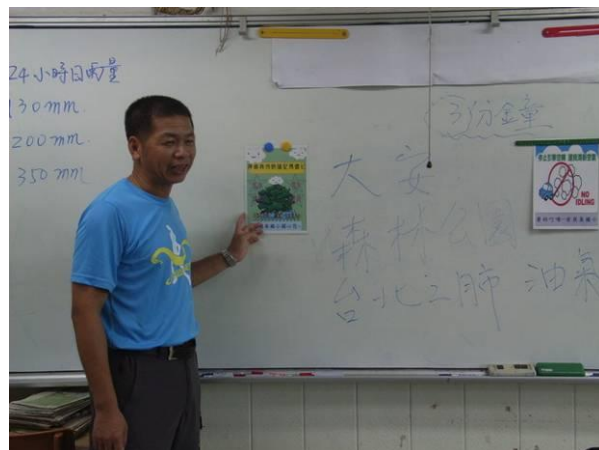 24小時日雨量
130mm.
200mm
350mm
3分鐘
大安
森林公園
台北之肺 油氣
NO
IDLING